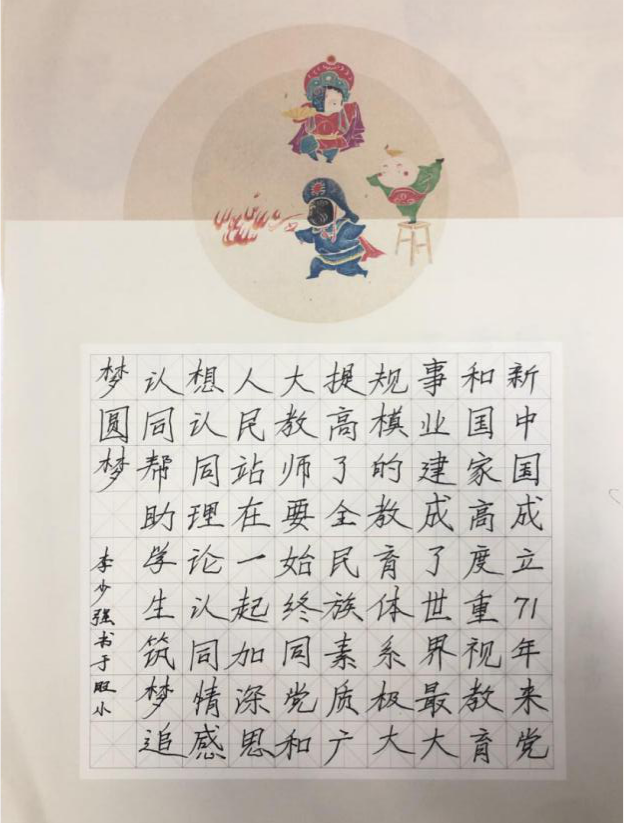 新中国成立71年来党
和国家高度重视教育
事业建成了世界最大
规模的教育体系极大
提高了全民族素质广
大教师要始终同党和
人民站在一起加深思
想认同理论认同情感
认同帮助学生筑梦追
梦圆梦
李少强书于